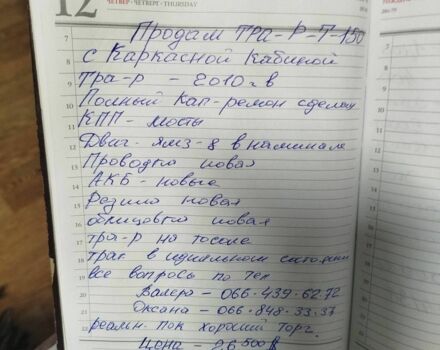 12
ЧЕТВЕР • ЧЕТВЕРГ • THURSDAY
7 Продам тра-р-Т-150
8 с Каркасной Кабиной
9 Тра-р - 2010г.в
10 Полный Кап-ремон сделан
11 КПП - мосты
12 Двиг. ямз-8 в наминале
13 Проводка новая
14 АКБ - новые
15 Резина новая
16 облицовка новая
17 тра-р на тосоле
18 трак в идиальном состоянии
все вопросы по тел
Валера - 066.439.62.72
Оксана - 066.848.33.37
22 реальн. пок хороший торг.
Цена - 26 500 $